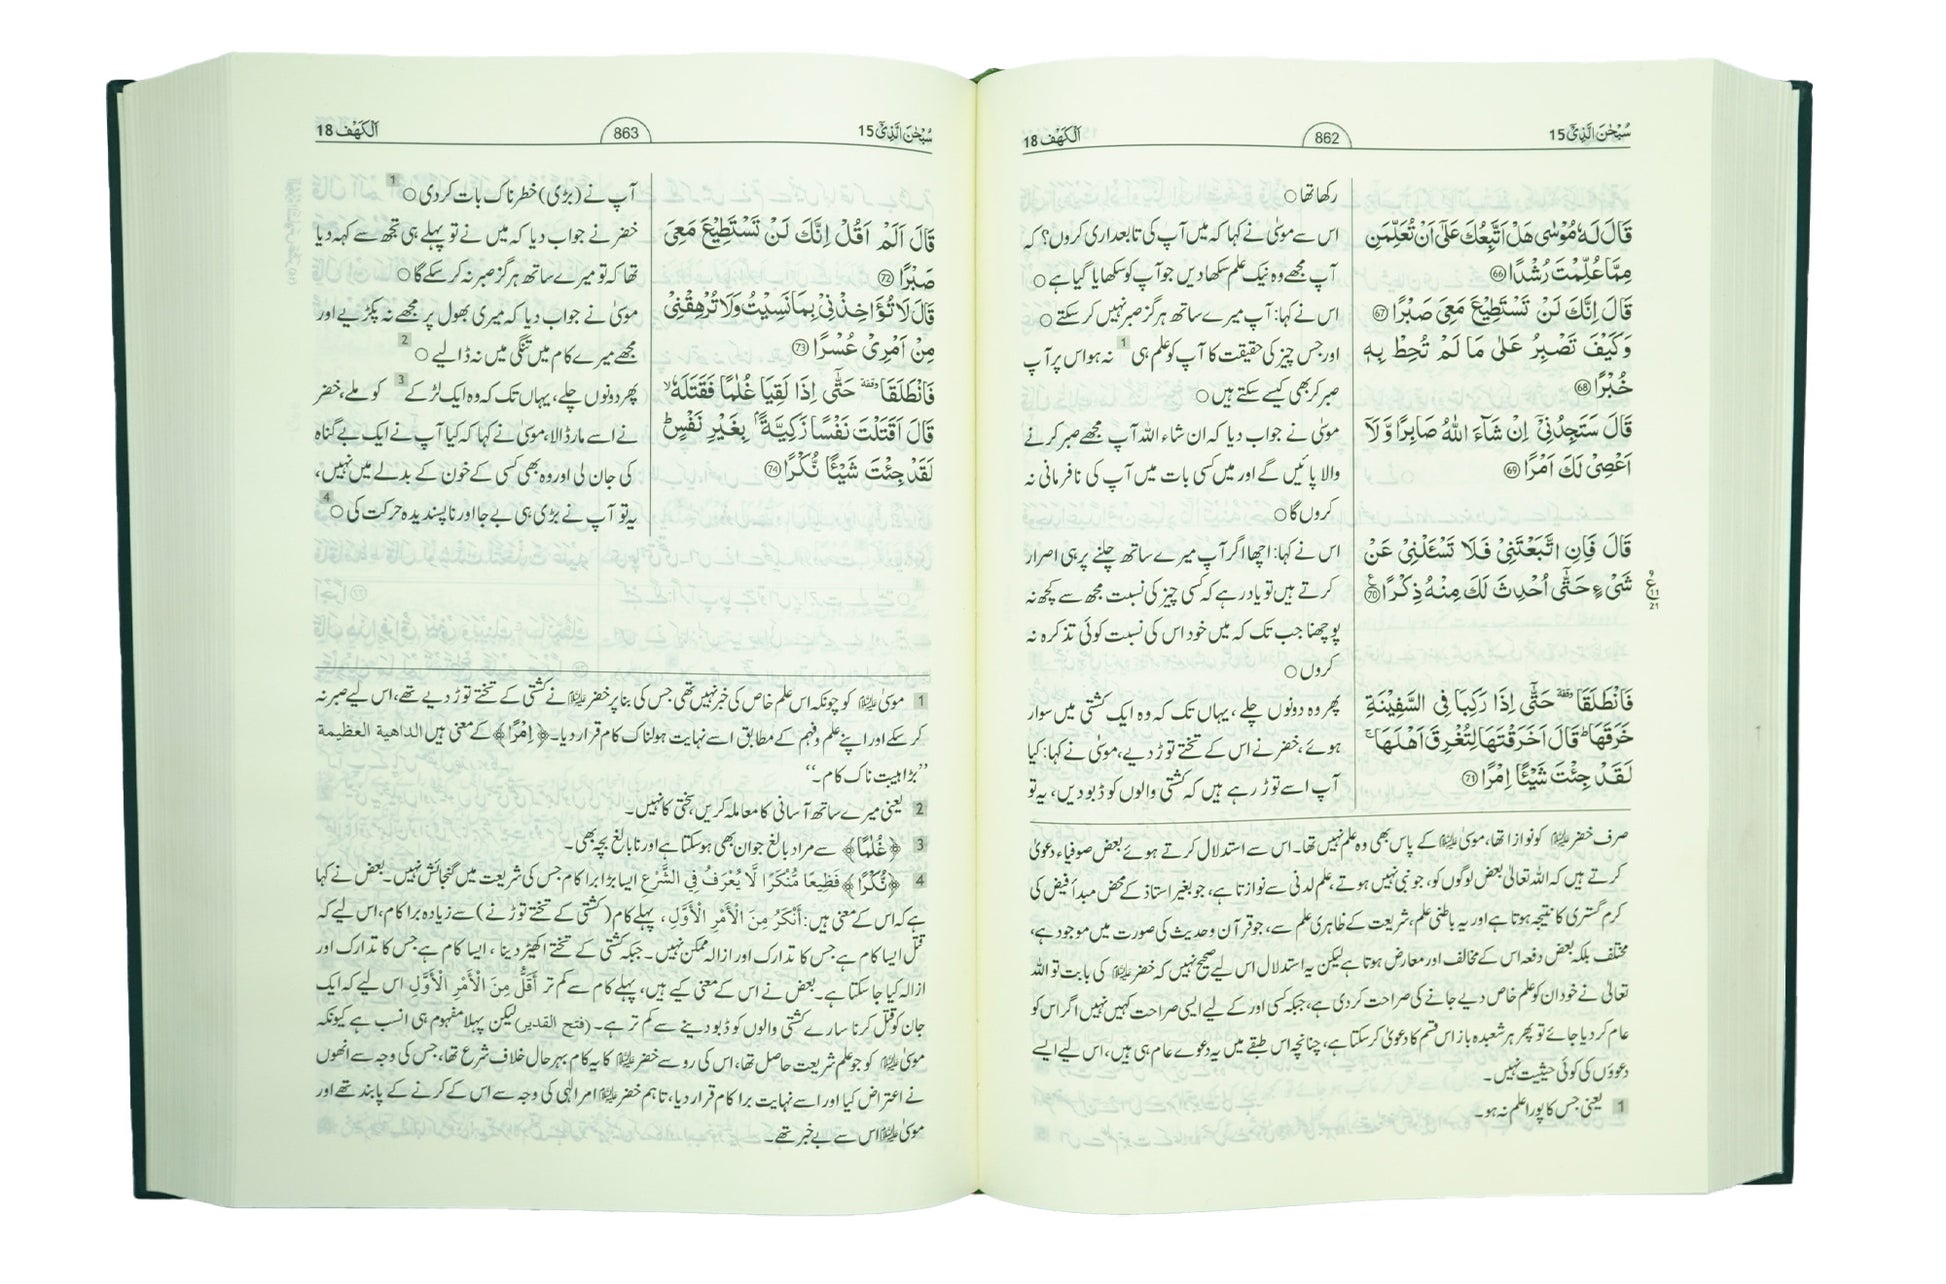 سُبْحٰنَ الَّذِیْٓ 15
862
اَلْكَهْف 18
قَالَ لَهٗ مُوْسٰى هَلْ اَتَّبِعُكَ عَلٰٓى اَنْ تُعَلِّمَنِ
مِمَّا عُلِّمْتَ رُشْدًا ﴿66﴾
قَالَ اِنَّكَ لَنْ تَسْتَطِيْعَ مَعِيَ صَبْرًا ﴿67﴾
وَكَيْفَ تَصْبِرُ عَلٰى مَا لَمْ تُحِطْ بِهٖ
خُبْرًا ﴿68﴾
قَالَ سَتَجِدُنِيْٓ اِنْ شَآءَ اللّٰهُ صَابِرًا وَّلَآ
اَعْصِيْ لَكَ اَمْرًا ﴿69﴾
قَالَ فَاِنِ اتَّبَعْتَنِيْ فَلَا تَسْـَٔلْنِيْ عَنْ
شَيْءٍ حَتّٰٓى اُحْدِثَ لَكَ مِنْهُ ذِكْرًا ﴿70﴾ۧ
فَانْطَلَقَا ۥ حَتّٰٓى اِذَا رَكِبَا فِي السَّفِيْنَةِ
خَرَقَهَا ؕ قَالَ اَخَرَقْتَهَا لِتُغْرِقَ اَهْلَهَا ۚ
لَقَدْ جِئْتَ شَيْـًٔا اِمْرًا ﴿71﴾
رکھا تھا ○
اس سے موسیٰ نے کہا کہ میں آپ کی تابعداری کروں؟ کہ
آپ مجھے وہ نیک علم سکھا دیں جو آپ کو سکھایا گیا ہے ○
اس نے کہا: آپ میرے ساتھ ہرگز صبر نہیں کر سکتے ○
اور جس چیز کی حقیقت کا آپ کو علم ہی 1 نہ ہو اس پر آپ
صبر کر بھی کیسے سکتے ہیں ○
موسیٰ نے جواب دیا کہ ان شاء اللہ آپ مجھے صبر کرنے
والا پائیں گے اور میں کسی بات میں آپ کی نافرمانی نہ
کروں گا ○
اس نے کہا: اچھا اگر آپ میرے ساتھ چلنے پر ہی اصرار
کرتے ہیں تو یاد رہے کہ کسی چیز کی نسبت مجھ سے کچھ نہ
پوچھنا جب تک کہ میں خود اس کی نسبت کوئی تذکرہ نہ
کروں ○
پھر وہ دونوں چلے، یہاں تک کہ وہ ایک کشتی میں سوار
ہوئے، خضر نے اس کے تختے توڑ دیے، موسیٰ نے کہا: کیا
آپ اسے توڑ رہے ہیں کہ کشتی والوں کو ڈبو دیں، یہ تو
ع 9 11 21
صرف خضر علیہ السلام کو نوازا تھا، موسیٰ علیہ السلام کے پاس بھی وہ علم نہیں تھا۔ اس سے استدلال کرتے ہوئے بعض صوفیاء دعویٰ
کرتے ہیں کہ اللہ تعالیٰ بعض لوگوں کو، جو نبی نہیں ہوتے، علم لدنی سے نوازتا ہے، جو بغیر استاذ کے محض مبدأ فیض کی
کرم گستری کا نتیجہ ہوتا ہے اور یہ باطنی علم، شریعت کے ظاہری علم سے، جو قرآن وحدیث کی صورت میں موجود ہے،
مختلف بلکہ بعض دفعہ اس کے مخالف اور معارض ہوتا ہے لیکن یہ استدلال اس لیے صحیح نہیں کہ خضر علیہ السلام کی بابت تو اللہ
تعالیٰ نے خود ان کو علم خاص دیے جانے کی صراحت کر دی ہے، جبکہ کسی اور کے لیے ایسی صراحت کہیں نہیں اگر اس کو
عام کر دیا جائے تو پھر ہر شعبدہ باز اس قسم کا دعویٰ کر سکتا ہے، چنانچہ اس طبقے میں یہ دعوے عام ہی ہیں، اس لیے ایسے
دعوؤں کی کوئی حیثیت نہیں۔
1 یعنی جس کا پورا علم نہ ہو۔
سُبْحٰنَ الَّذِیْٓ 15
863
اَلْكَهْف 18
قَالَ اَلَمْ اَقُلْ اِنَّكَ لَنْ تَسْتَطِيْعَ مَعِيَ
صَبْرًا ﴿72﴾
قَالَ لَا تُؤَاخِذْنِيْ بِمَا نَسِيْتُ وَلَا تُرْهِقْنِيْ
مِنْ اَمْرِيْ عُسْرًا ﴿73﴾
فَانْطَلَقَا وقفة حَتّٰٓى اِذَا لَقِيَا غُلٰمًا فَقَتَلَهٗ ۙ
قَالَ اَقَتَلْتَ نَفْسًا زَكِيَّةًۢ بِغَيْرِ نَفْسٍ ؕ
لَقَدْ جِئْتَ شَيْـًٔا نُّكْرًا ﴿74﴾
آپ نے (بڑی) خطرناک بات کر دی ○ 1
خضر نے جواب دیا کہ میں نے تو پہلے ہی تجھ سے کہہ دیا
تھا کہ تو میرے ساتھ ہرگز صبر نہ کر سکے گا ○
موسیٰ نے جواب دیا کہ میری بھول پر مجھے نہ پکڑیے اور
مجھے میرے کام میں تنگی میں نہ ڈالیے ○ 2
پھر دونوں چلے، یہاں تک کہ وہ ایک لڑکے 3 کو ملے، خضر
نے اسے مار ڈالا، موسیٰ نے کہا کہ کیا آپ نے ایک بے گناہ
کی جان لی اور وہ بھی کسی کے خون کے بدلے میں نہیں،
یہ تو آپ نے بڑی ہی بے جا اور ناپسندیدہ حرکت کی ○ 4
1 موسیٰ علیہ السلام کو چونکہ اس علم خاص کی خبر نہیں تھی جس کی بنا پر خضر علیہ السلام نے کشتی کے تختے توڑ دیے تھے، اس لیے صبر نہ
کر سکے اور اپنے علم وفہم کے مطابق اسے نہایت ہولناک کام قرار دیا۔ ﴿اِمْرًا﴾ کے معنی ہیں الداهية العظيمة
”بڑا ہیبت ناک کام۔“
2 یعنی میرے ساتھ آسانی کا معاملہ کریں، سختی کا نہیں۔
3 ﴿غُلٰمًا﴾ سے مراد بالغ جوان بھی ہو سکتا ہے اور نابالغ بچہ بھی۔
4 ﴿نُكْرًا﴾ فَظِيعًا مُنْكَرًا لَّا يُعْرَفُ فِي الشَّرْعِ ایسا بڑا برا کام جس کی شریعت میں گنجائش نہیں۔ بعض نے کہا
ہے کہ اس کے معنی ہیں: أَنْكَرُ مِنَ الْأَمْرِ الْأَوَّلِ، پہلے کام (کشتی کے تختے توڑنے) سے زیادہ برا کام، اس لیے کہ
قتل ایسا کام ہے جس کا تدارک اور ازالہ ممکن نہیں۔ جبکہ کشتی کے تختے اکھیڑ دینا، ایسا کام ہے جس کا تدارک اور
ازالہ کیا جا سکتا ہے۔ بعض نے اس کے معنی کیے ہیں، پہلے کام سے کم تر أَقَلُّ مِنَ الْأَمْرِ الْأَوَّلِ اس لیے کہ ایک
جان کو قتل کرنا سارے کشتی والوں کو ڈبو دینے سے کم تر ہے۔ (فتح القدیر) لیکن پہلا مفہوم ہی انسب ہے کیونکہ
موسیٰ علیہ السلام کو جو علم شریعت حاصل تھا، اس کی رو سے خضر علیہ السلام کا یہ کام بہرحال خلاف شرع تھا، جس کی وجہ سے انھوں
نے اعتراض کیا اور اسے نہایت برا کام قرار دیا، تاہم خضر علیہ السلام امر الٰہی کی وجہ سے اس کے کرنے کے پابند تھے اور
موسیٰ علیہ السلام اس سے بے خبر تھے۔